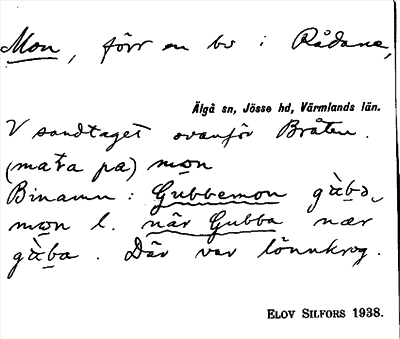 Mon, förr en bo i Rådane,
Älgå sn, Jösse hd, Värmlands län.
V sandtaget ovanför Bråten.
(mata pa) mo̲n
Binamn: Gubbemon gàb̲ə-
mo̲n l. när Gubba nær
gàb̲a. Där var lönnkrog.
ELOV SILFORS 1938.